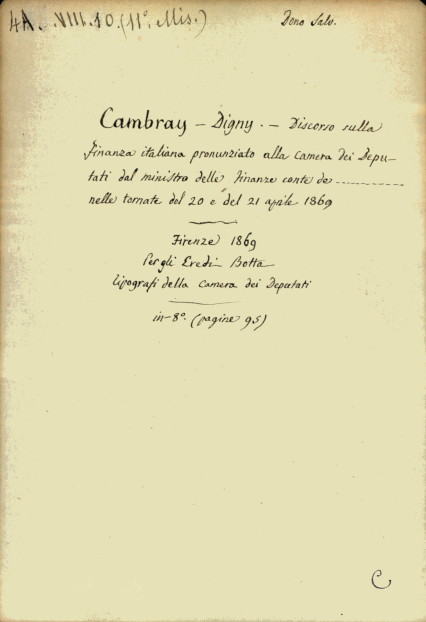 4A. VIII. 10. (11º. Mis.)
Dono Salv.
Cambray - Digny. - Discorso sulla
finanza italiana pronunziato alla Camera dei Depu-
tati dal ministro delle finanze conte de ------------
nelle tornate del 20 e del 21 aprile 1869
Firenze 1869
Per gli Eredi Botta
tipografi della Camera dei Deputati
in-8º. (pagine 95)
C